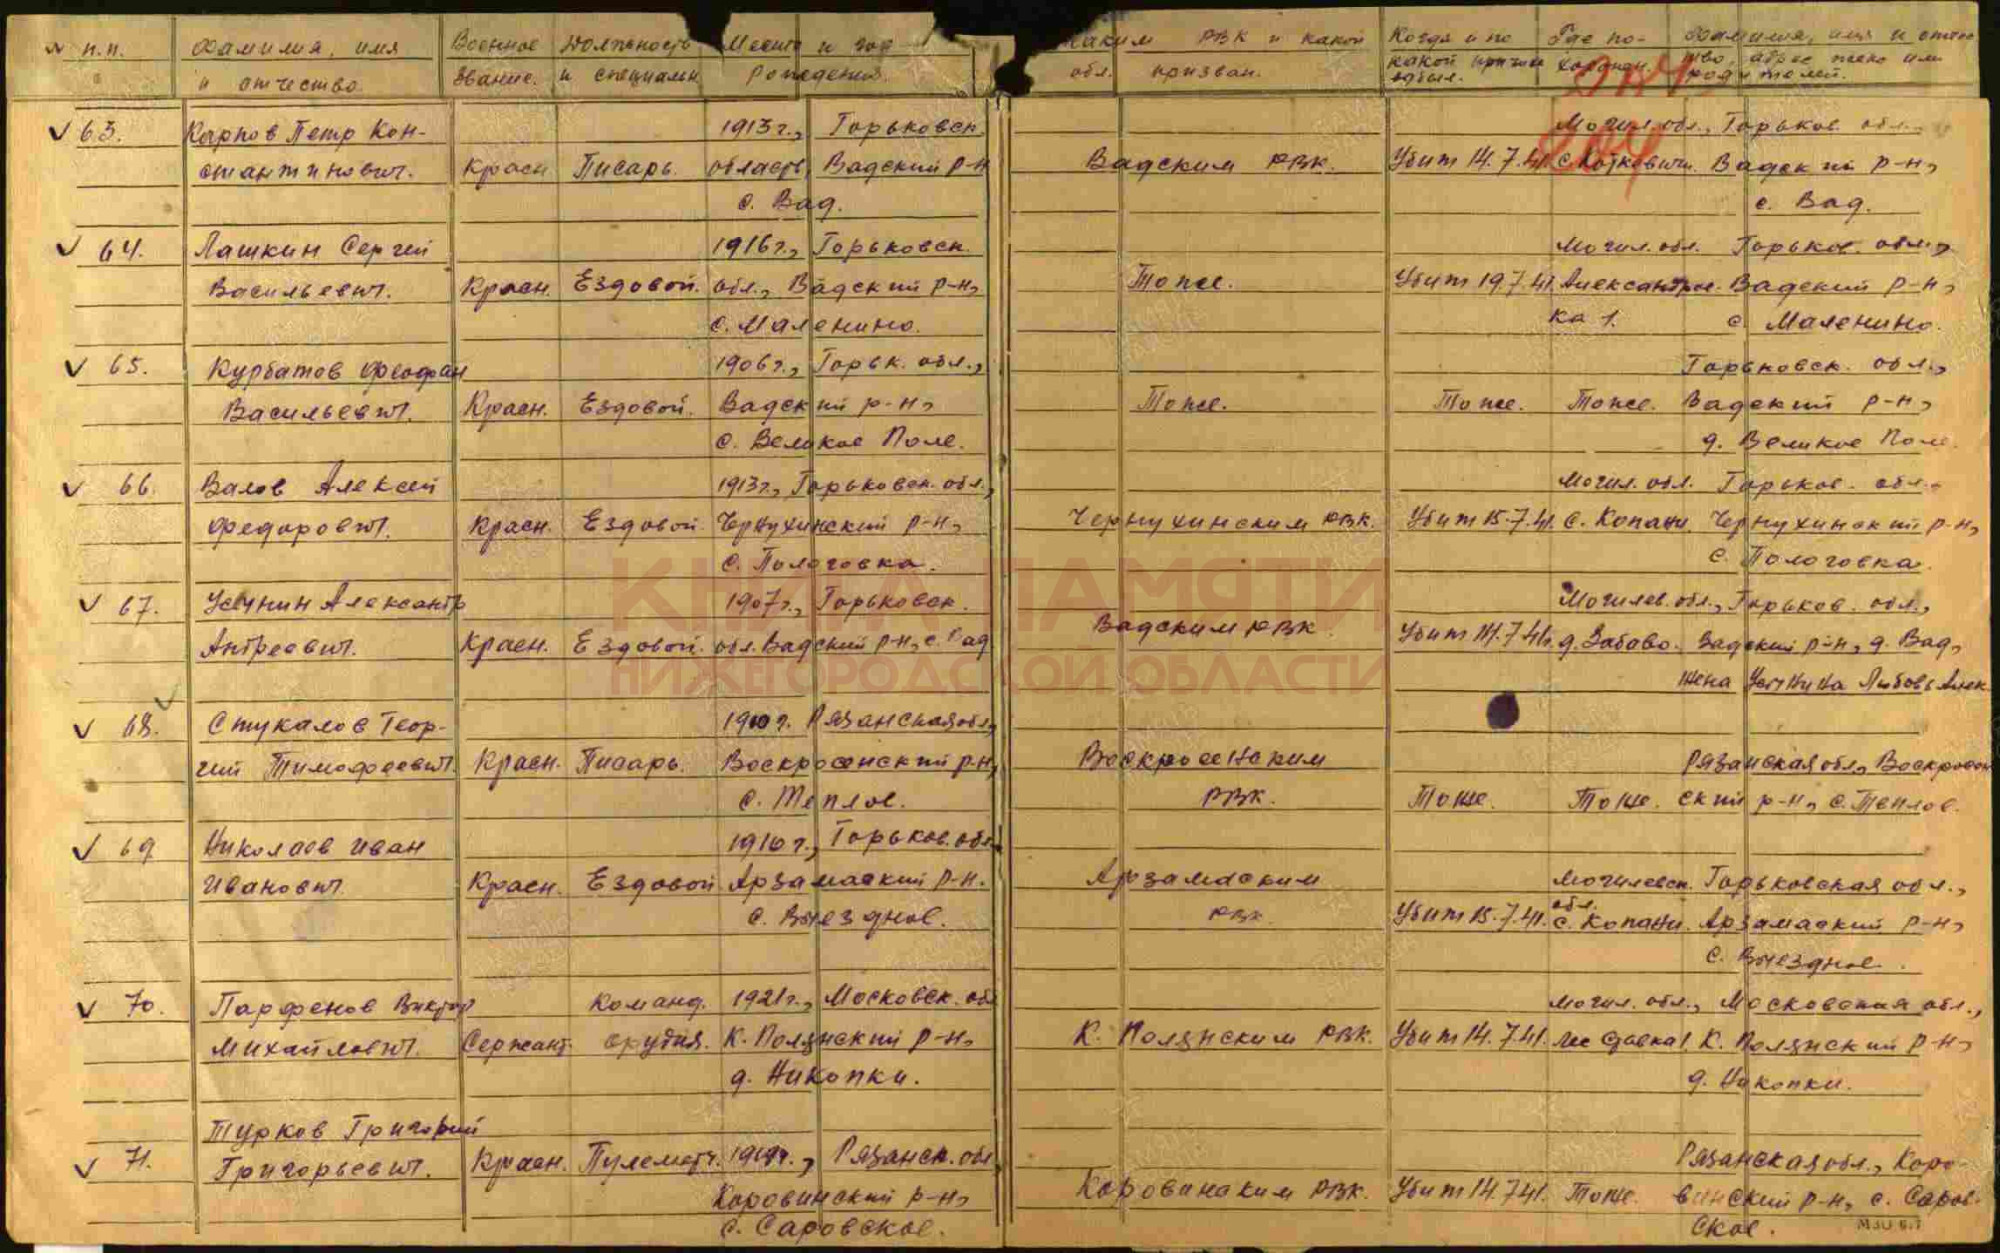 № п.п. Фамилия, имя Военное Должность Место и год РВК и какой Когда и по Где по- Фамилия, имя и отчес
и отчество звание. и специальн. рождения. обл. призван. какой причине выбыл. хоронен. тво, адрес жены или родителей.
63. Карпов Петр Кон- 1913 г., Горьковск. Могил. обл., Горьков. обл.,
стантинович. Красн. Писарь. область, Вадский р-н Вадским РВК. Убит 14.7.41. с. Вадский р-н,
с. Вад. с. Вад.
64. Лашкин Сергей 1916 г., Горьковск. Могил. обл. Горьков. обл.,
Васильевич. Красн. Ездовой. обл., Вадский р-н, Тоже. Убит 19.7.41. Александров- Вадский р-н,
с. Маленино. ка 1. с. Маленино.
65. Курбатов Феофан 1906 г., Горьк. обл., Горьковск. обл.,
Васильевич. Красн. Ездовой. Вадский р-н, Тоже. Тоже. Тоже. Вадский р-н,
с. Великое Поле. д. Великое Поле.
66. Валов Алексей 1913 г., Горьковск. обл., Могил. обл. Горьков. обл.,
Федорович. Красн. Ездовой. Чернухинский р-н, Чернухинским РВК. Убит 15.7.41. с. Копани. Чернухинский р-н,
с. Пологовка. с. Пологовка.
67. Усичнин Александр 1907 г., Горьковск. Могилев. обл., Горьков. обл.,
Андреевич. Красн. Ездовой. обл. Вадский р-н, с. Вад Вадским РВК. Убит 14.7.41. д. Забаво. Вадский р-н, д. Вад,
жена Любовь Алек.
68. Стукалов Геор- 1910 г. Рязанская обл.,
гий Тимофеевич. Красн. Писарь. Воскресенский р-н, Воскресенским Рязанская обл., Воскресен
с. Теплое. РВК. Тоже. Тоже. ский р-н, с. Теплов.
69 Николаев Иван 1910 г., Горьков. обл.
Иванович. Красн. Ездовой Арзамаский р-н. Арзамаским Могилевск. Горьковская обл.,
с. Выездное. РВК. Убит 15.7.41. обл. с. Копани. Арзамаский р-н,
с. Выездное.
70. Парфенов Виктор Команд. 1921 г., Московск. обл Могил. обл., Московская обл.,
Михайлович. Сержант. орудия. К. Полянский р-н, К. Полянским РВК. Убит 14.7.41. К. Полянский р-н,
д. Никопки. д. Никопки.
Турков Григорий
71. Григорьевич. Красн. Пулеметч. 1919 г., Рязанск. обл Рязанская обл., Коро-
Коровинский р-н, Коровинским РВК. Убит 14.7.41. Тоже. винский р-н, с. Саров-
с. Саровское. ское.
КНИГА ПАМЯТИ
НИЖЕГОРОДСКОЙ ОБЛАСТИ